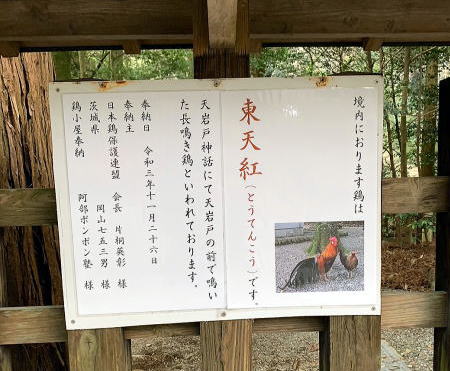 境内におります鶏は
東天紅（とうてんこう）です。
天岩戸神話にて天岩戸の前で鳴い
た長鳴き鶏といわれております。
奉納日　令和三年十一月二十六日
奉納主
日本鶏保護連盟　会長　片桐英彰　様
茨城県　岡山七五三男　様
鶏小屋奉納　阿部ポンポン塾　様